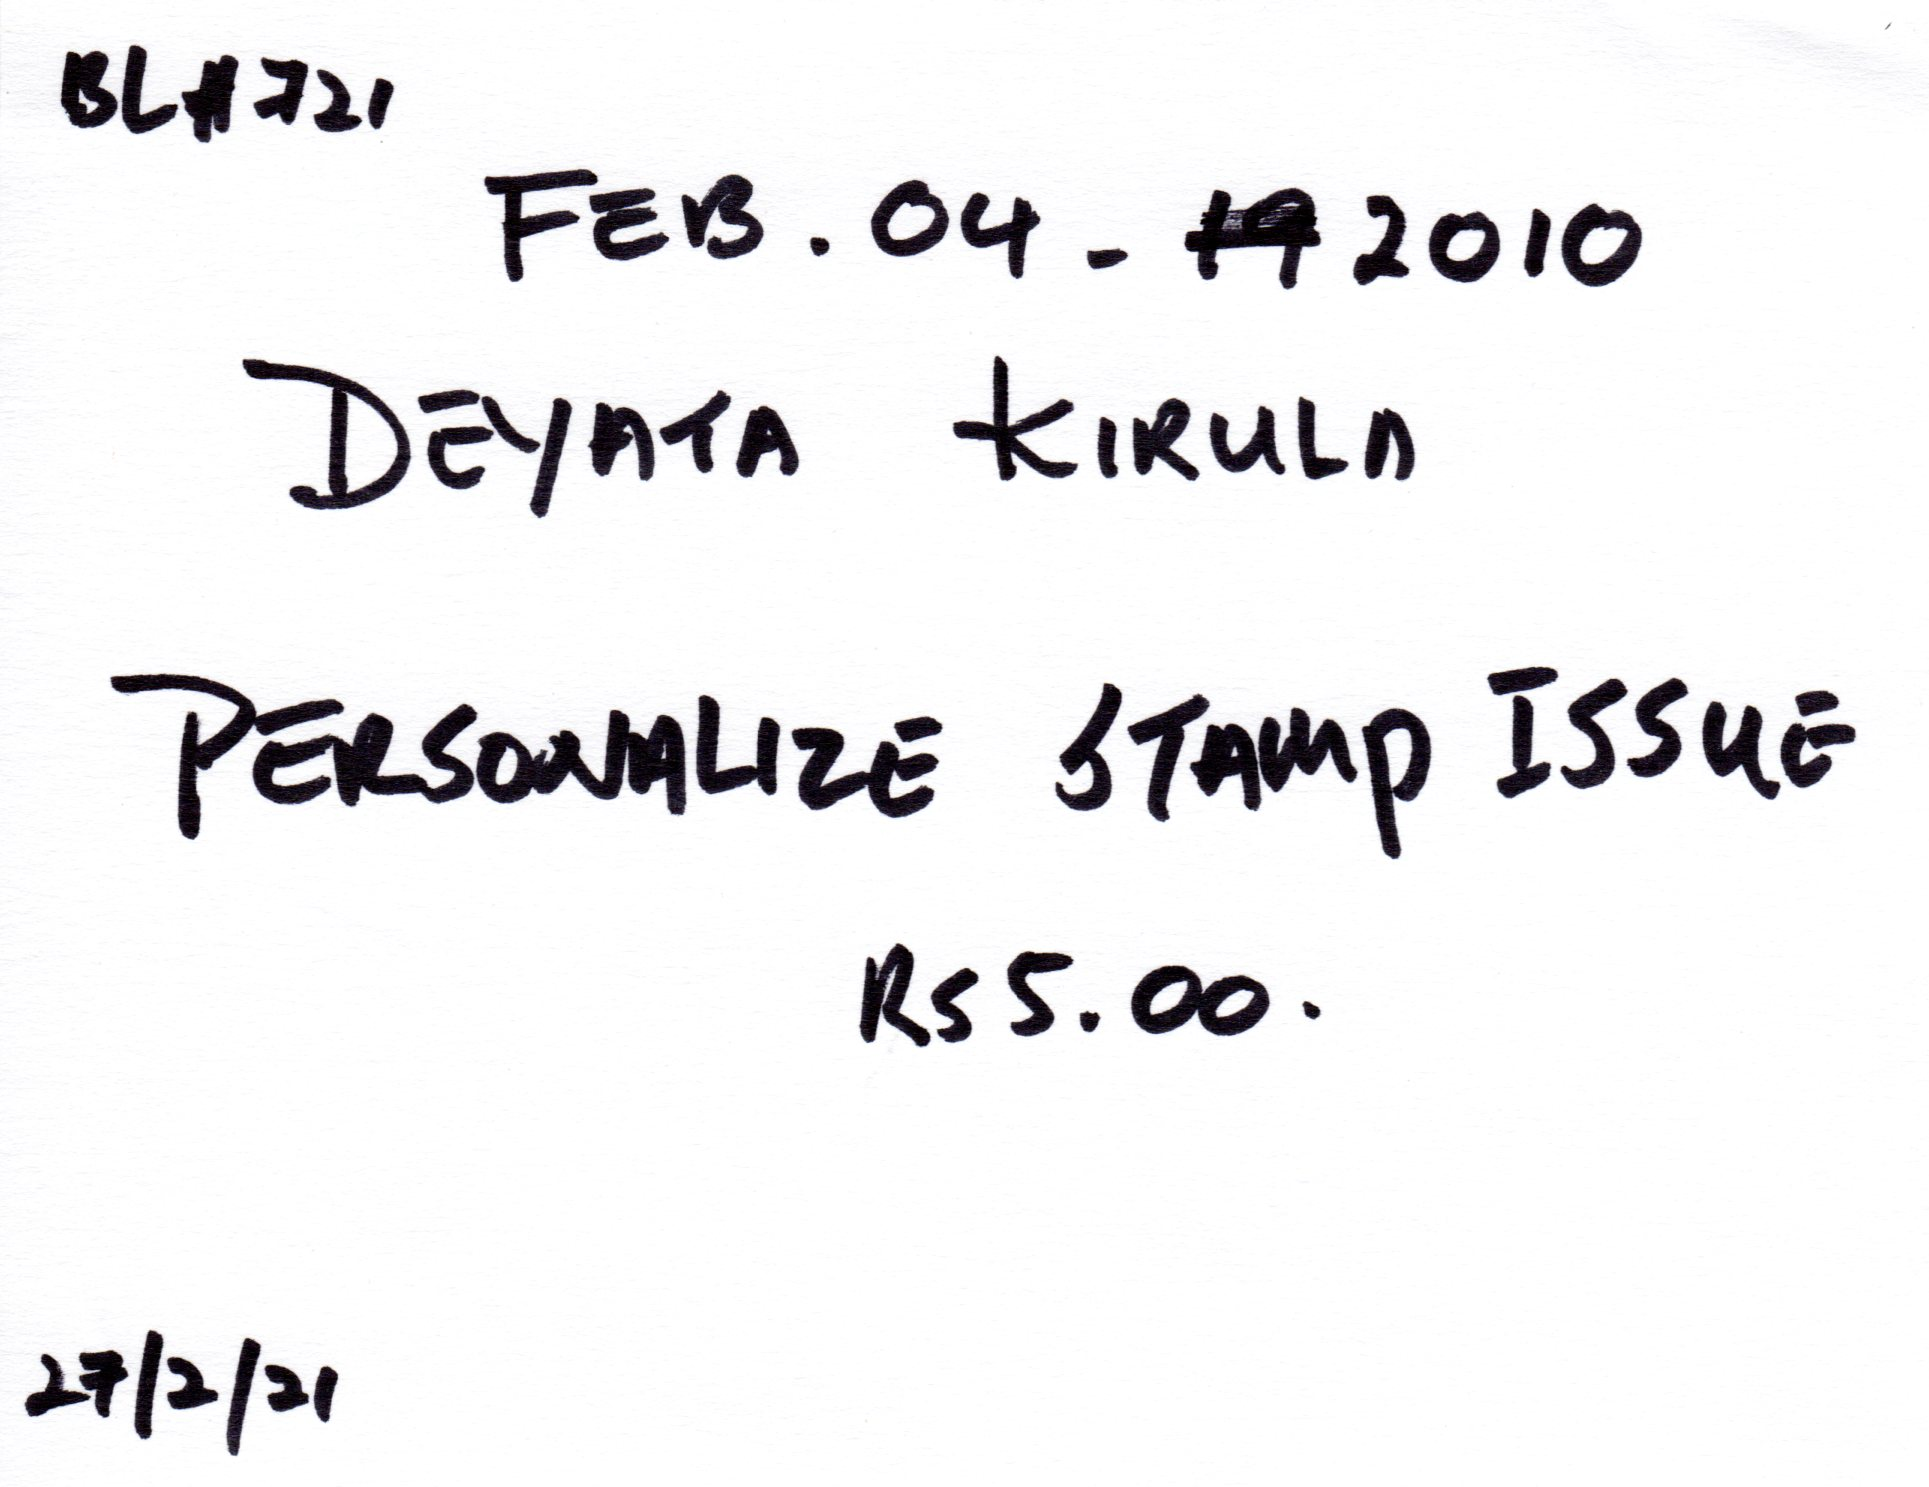 BL#721
FEB. 04 - 2010
DEYATA KIRULA
PERSONALIZE STAMP ISSUE
Rs 5.00.
27/2/21